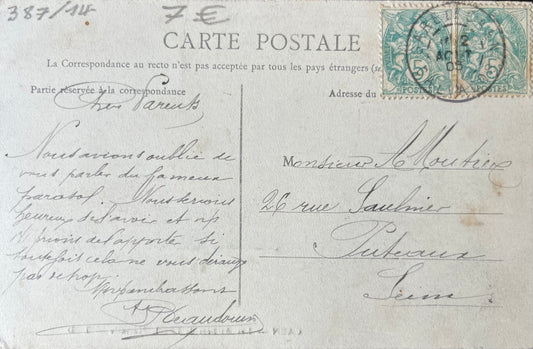 387/14 7 €
CARTE POSTALE
La Correspondance au recto n'est pas acceptée par tous les pays étrangers
Partie réservée à la correspondance
Adresse du
Chers Parents
Nous avions oublié de
vous parler du fameux
parasol. Nous serions
heureux de l'avoir et
prions de l'apporter si
toutefois cela ne vous dérange
pas de trop.
embrassons
Monsieur A Moutiex
26 rue Saulnier
Puteaux
Seine
2
AOUT
05
POSTES
POSTES